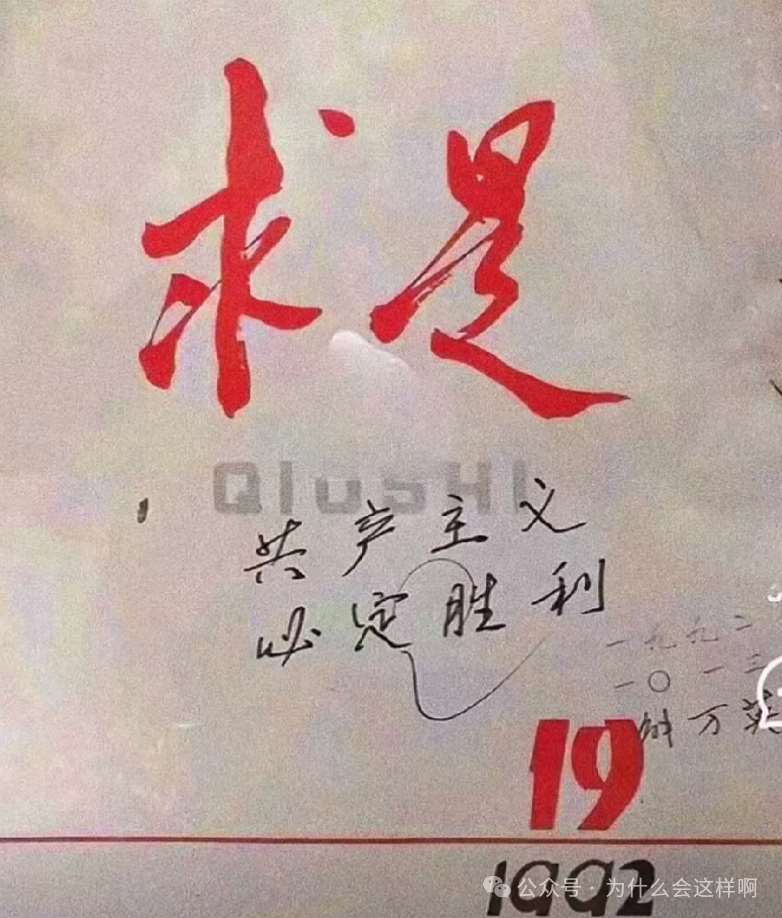 求是
QIUSHI
共产主义
必定胜利
一九九二
一〇一三
解万英
19
1992
公众号·为什么会这样啊